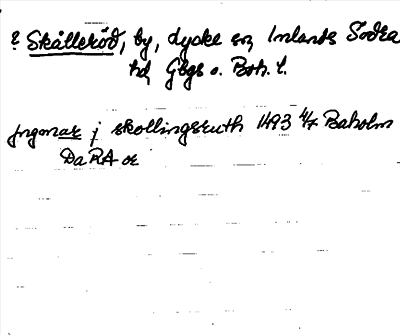 ? Skälleröd, by, Lycke sn, Inlands Södra
hd, Gbgs o. Boh. l.
jngemar j skollingsruth 1493 4/7 Baholm
Da RA or